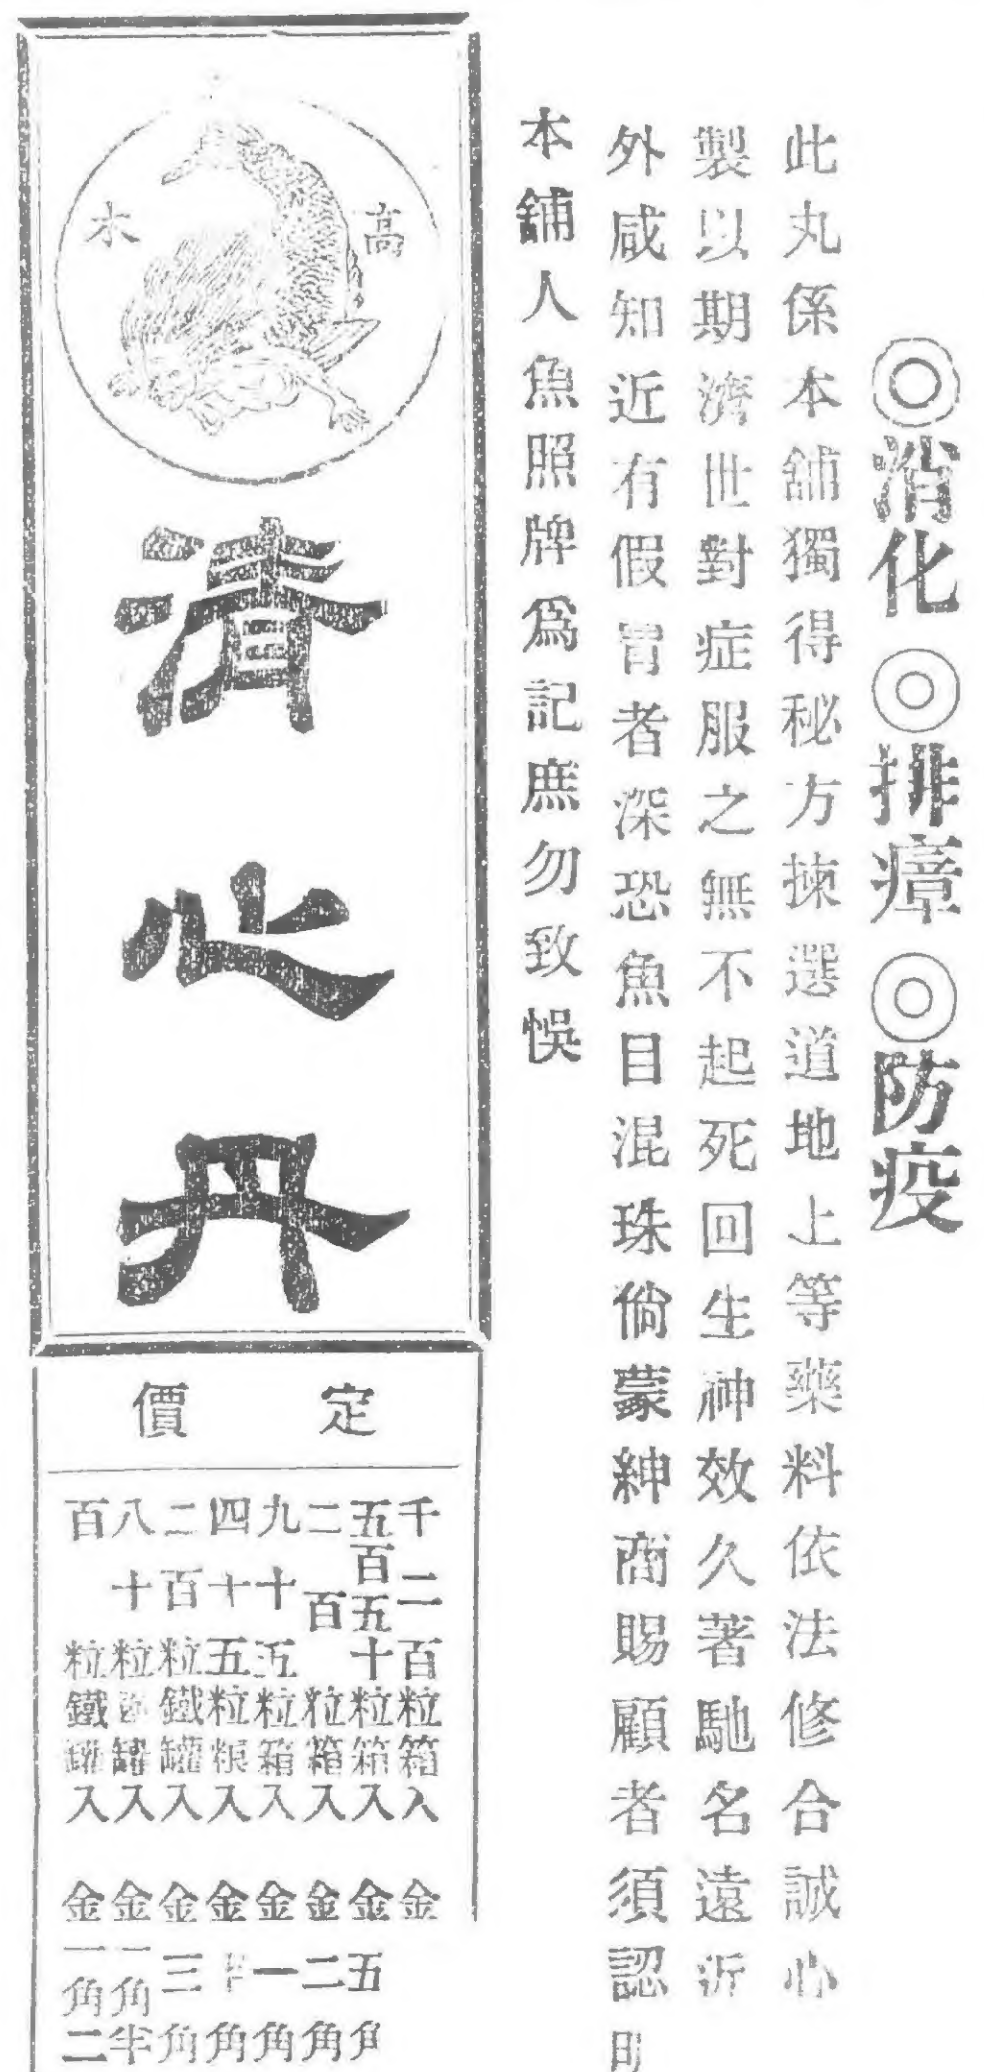 ◎消化◎排瘴◎防疫
此丸係本舖獨得秘方揀選道地上等藥料依法修合誠心
製以期濟世對症服之無不起死回生神效久著馳名遠近
外咸知近有假冐者深恐魚目混珠倘蒙紳商賜顧者須認明
本舖人魚照牌爲記庶勿致悞
高木
清心丹
定價
千二百粒箱入金
五百五十粒箱入金五角
二百粒箱入金二角
九十五粒箱入金一角
四十五粒入金角
二百粒鐵罐入金三角
八十粒罐入金一角半
百粒鐵罐入金一角二